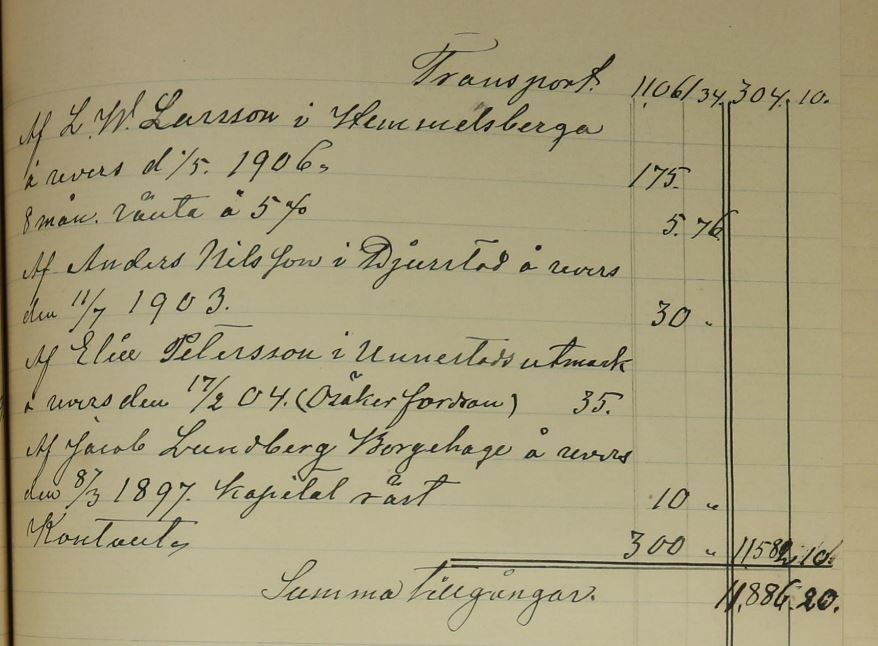 Transport. 11,061 34. 304. 10.
Af L. W. Larsson i Hemmelsberga
å revers d 1/5. 1906. 175.
8 mån. ränta å 5% 5. 76
Af Anders Nilsson i Djurstad å revers
den 11/7 1903. 30 "
Af Elice Petersson i Unnestads utmark
å revers den 17/2 04. (Osäker fordran) 35.
Af Jacob Lundberg Borgehage å revers
den 8/3 1897. Kapital räst 10 "
Kontant, 300 " 11582 10.
Summa tillgångar. 11,886. 20.